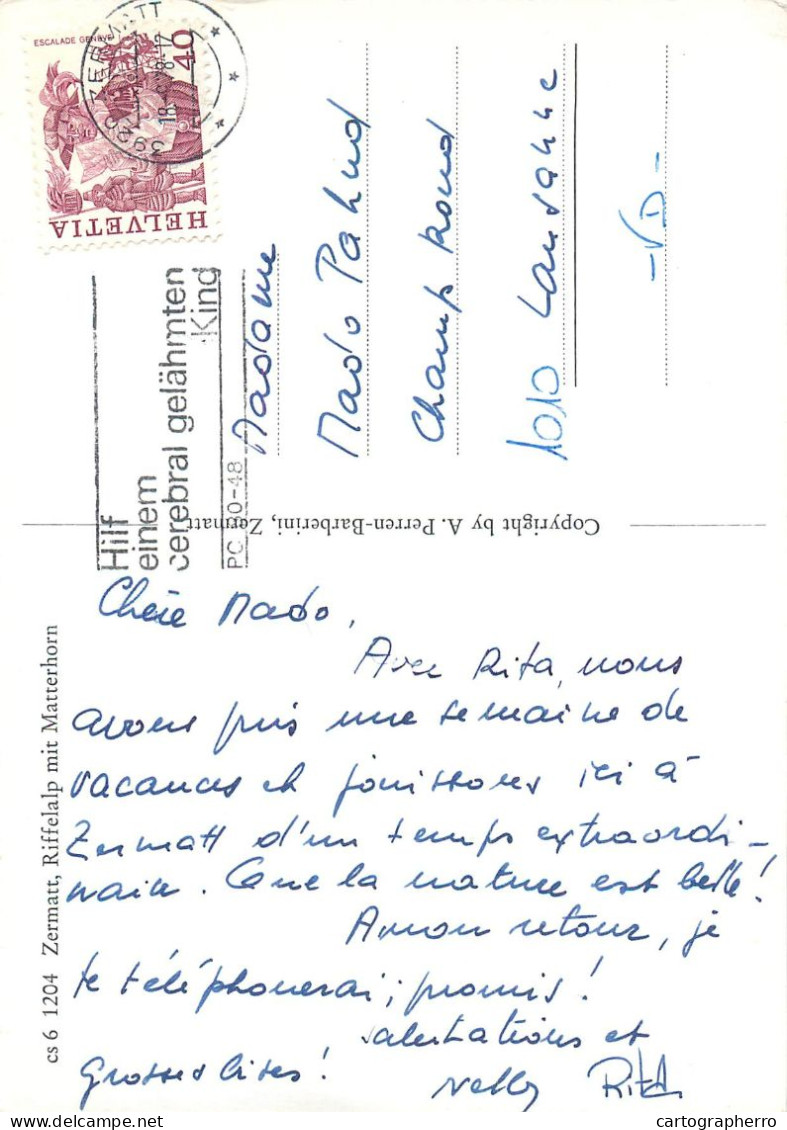 ESCALADE GENÈVE
40
HELVETIA
3920 ZERMATT
18.
8-12
Hilf
einem
cerebral gelähmten
Kind
PC 80-48
Madame
Mado Pahud
Champ Rond
1010 Lausanne
- VD -
Copyright by A. Perren-Barberini, Zermatt
cs 6 1204 Zermatt, Riffelalp mit Matterhorn
Chère Mado,
Avec Rita, nous
avons pris une semaine de
vacances et jouissons ici à
Zermatt d'un temps extraordi-
naire. Que la nature est belle!
A mon retour, je
te téléphonerai; promis!
salutations et
Grosses bises!
Nelly Rita
cartographerro.com